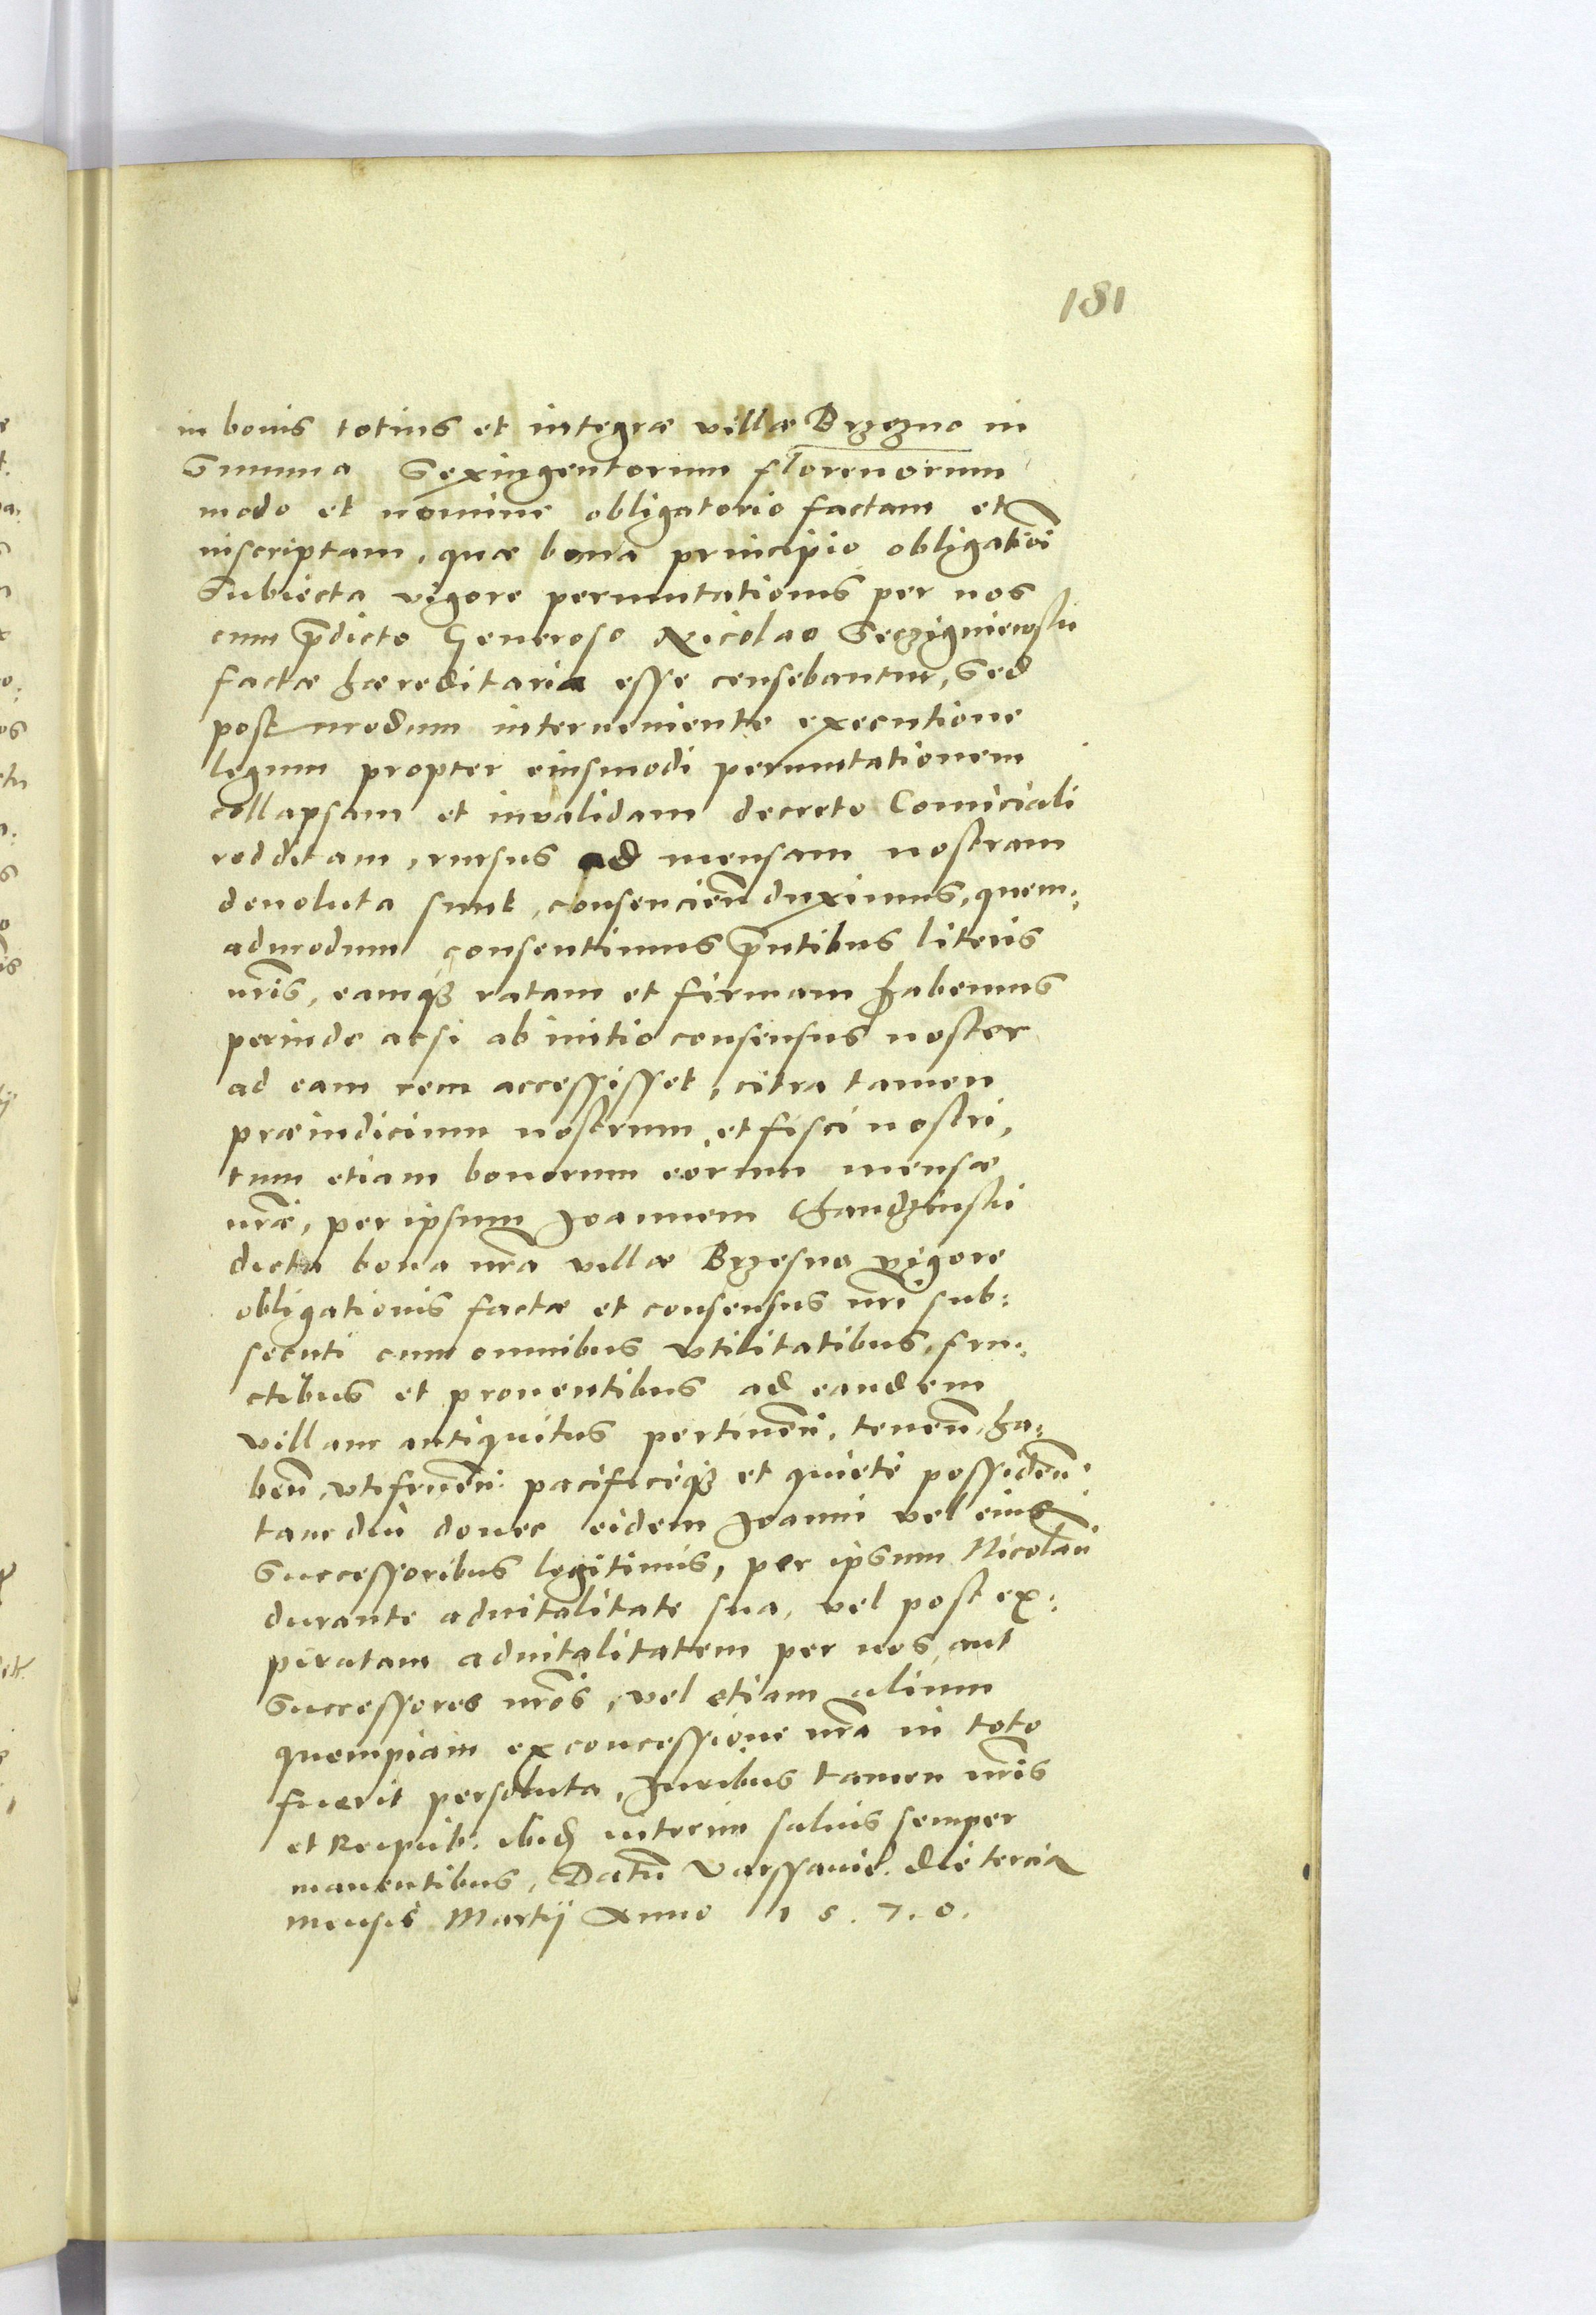 181
in bonis totius et integræ villæ Brzezno in
Summa Sexingentorum florenorum
modo et nomine obligatorio factam et
inscriptam, quæ bona principio obligatiōi
Subiecta vigore permutationis per nos
cum p̄dicto Generoso Nicolao
factæ hæreditaria esse censebantur, Sed
post modum interueniente executione
legum propter eiusmodi permutationem
collapsam et inualidam decreto Comiciali
redditam, rursus ad mensam nostram
deuoluta sunt, consenciēn duximus, quem:
admodum consentimus p̄ntibus literis
nr̄is, eamqꝫ ratam et firmam habemus
perinde acsi ab initio consensus noster
ad eam rem accessisset, citra tamen
præiudicium nostrum, et fisci nostri,
tum etiam bonorum eorum mensæ
nr̄æ, per ipsum Joannem Chandzinski
dicta bona nr̄a villæ Brzesno vigore
obligationis factæ et consensus nr̄i sub:
secuti cum omnibus vtilitatibus, fru:
ctibus et prouentibus ad eandem
villam antiquitus pertinēn. tenēn, ha:
bēn, vtifruēn. pacificeqꝫ et quiete possidēn.
tam diu donec eidem Joanni vel eius
Successoribus legitimis, per ipsum Nicolaū
durante aduitalitate sua, vel post ex:
piratam aduitalitatem per nos aut
Successores nr̄os, vel etiam alium
quempiam ex concessione nr̄a in toto
fuerit persoluta, Juribus tamen nr̄is
et Reipub: ibid interim saluis semper
manentibus, Datū Varssauiē. die tercia
mensis Martij Anno 1 5 . 7 . 0 .